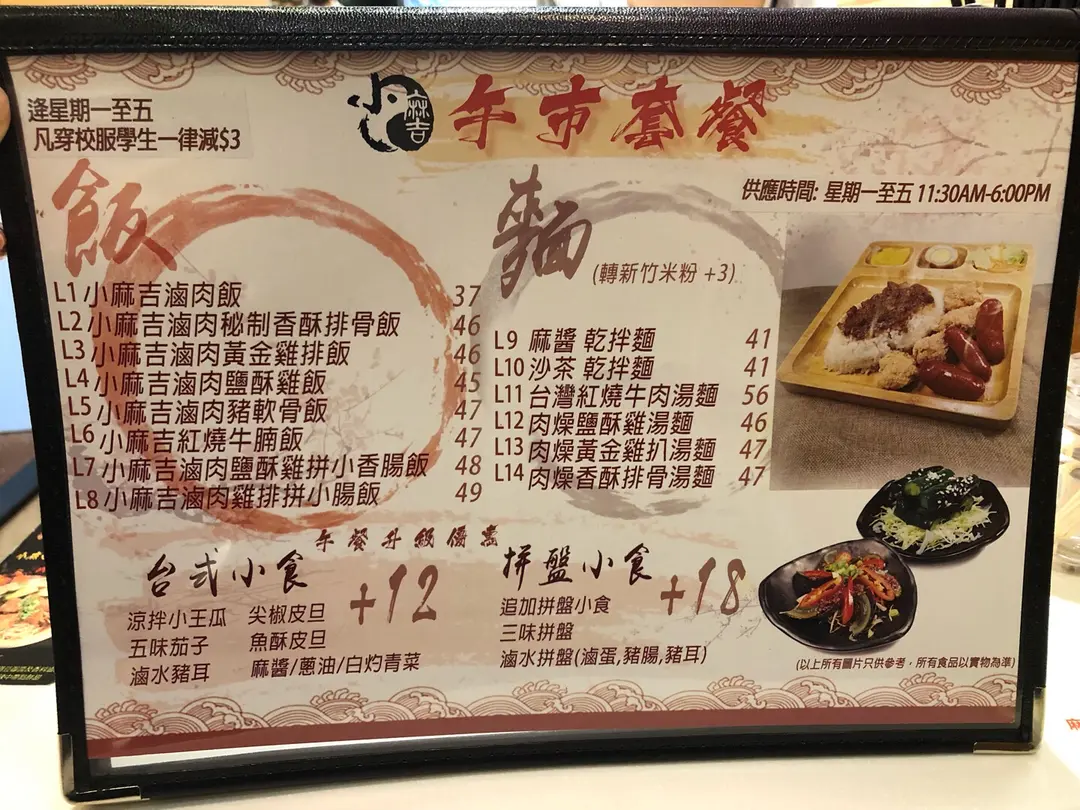 逢星期一至五
凡穿校服學生一律減$3
小麻吉 午市套餐
供應時間: 星期一至五 11:30AM-6:00PM
飯
L1 小麻吉滷肉飯 37
L2 小麻吉滷肉秘制香酥排骨飯 46
L3 小麻吉滷肉黃金雞排飯 46
L4 小麻吉滷肉鹽酥雞飯 45
L5 小麻吉滷肉豬軟骨飯 47
L6 小麻吉紅燒牛腩飯 47
L7 小麻吉滷肉鹽酥雞拼小香腸飯 48
L8 小麻吉滷肉雞排拼小腸飯 49
麵
(轉新竹米粉 +3)
L9 麻醬 乾拌麵 41
L10 沙茶 乾拌麵 41
L11 台灣紅燒牛肉湯麵 56
L12 肉燥鹽酥雞湯麵 46
L13 肉燥黃金雞扒湯麵 47
L14 肉燥香酥排骨湯麵 47
午餐升級優惠
台式小食 +12
涼拌小王瓜 尖椒皮旦
五味茄子 魚酥皮旦
滷水豬耳 麻醬/蔥油/白灼青菜
拼盤小食 +18
追加拼盤小食
三味拼盤
滷水拼盤(滷蛋,豬腸,豬耳)
(以上所有圖片只供參考，所有食品以實物為準)